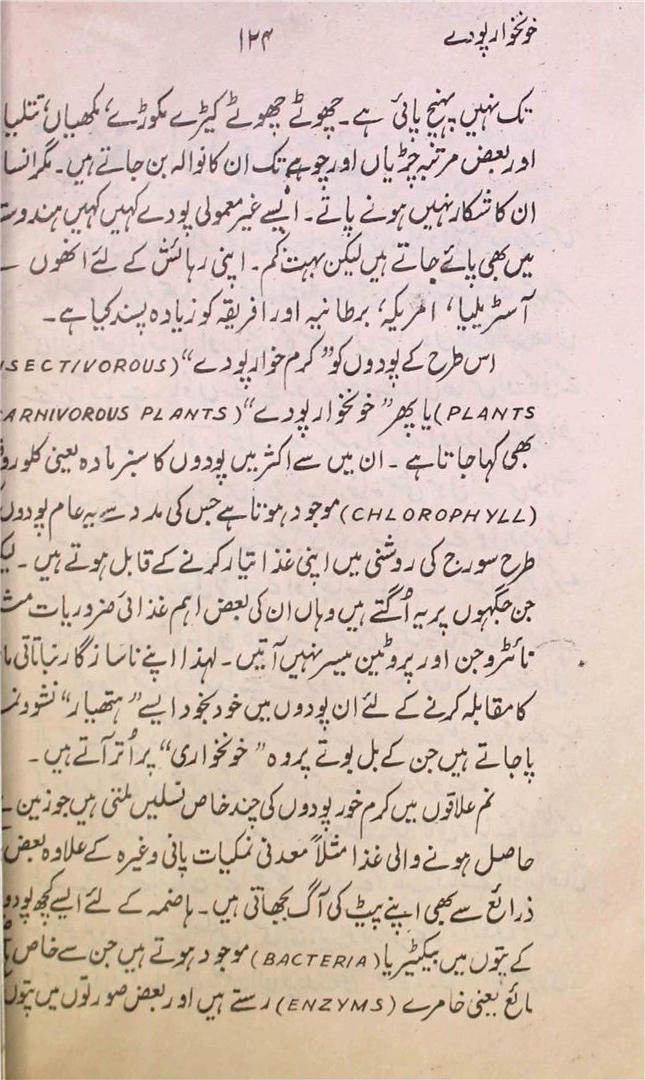 خونخوار پودے
۱۲۴
تک نہیں پہنچ پائی ہے۔ چھوٹے چھوٹے کیڑے مکوڑے، مکھیاں، تتلیا
اور بعض مرتبہ چڑیاں اور چوہے تک ان کا نوالہ بن جاتے ہیں۔ مگر انسا
ان کا شکار نہیں ہونے پاتے۔ ایسے غیر معمولی پودے کہیں کہیں ہندوست
میں بھی پائے جاتے ہیں لیکن بہت کم۔ اپنی رہائش کے لئے انھوں
آسٹریلیا، امریکہ، برطانیہ اور افریقہ کو زیادہ پسند کیا ہے۔
اس طرح کے پودوں کو "کرم خوار پودے" (SECTIVOROUS
PLANTS) یا پھر "خونخوار پودے" (ARNIVOROUS PLANTS
بھی کہا جاتا ہے۔ ان میں سے اکثر میں پودوں کا سبز مادہ یعنی کلورو
(CHLOROPHYLL) موجود ہوتا ہے جس کی مدد سے یہ عام پودوں
طرح سورج کی روشنی میں اپنی غذا تیار کرنے کے قابل ہوتے ہیں۔ لیک
جن جگہوں پر یہ اُگتے ہیں وہاں ان کی بعض اہم غذائی ضروریات مث
نائٹروجن اور پروٹین میسر نہیں آتیں۔ لہذا اپنے ناسازگار نباتاتی ما
کا مقابلہ کرنے کے لئے ان پودوں میں خود بخود ایسے "ہتھیار" نشوونم
پا جاتے ہیں جن کے بل بوتے پر وہ "خونخواری" پر اُتر آتے ہیں۔
نم علاقوں میں کرم خور پودوں کی چند خاص نسلیں ملتی ہیں جو زمین
حاصل ہونے والی غذا مثلاً معدنی نمکیات پانی وغیرہ کے علاوہ بعض
ذرائع سے بھی اپنے پیٹ کی آگ بجھاتی ہیں۔ ہاضمہ کے لئے ایسے کچھ پودو
کے پتوں میں بیکٹیریا (BACTERIA) موجود ہوتے ہیں جن سے خاص
مائع یعنی خامرے (ENZYMS) رستے ہیں اور بعض صورتوں میں پتوں